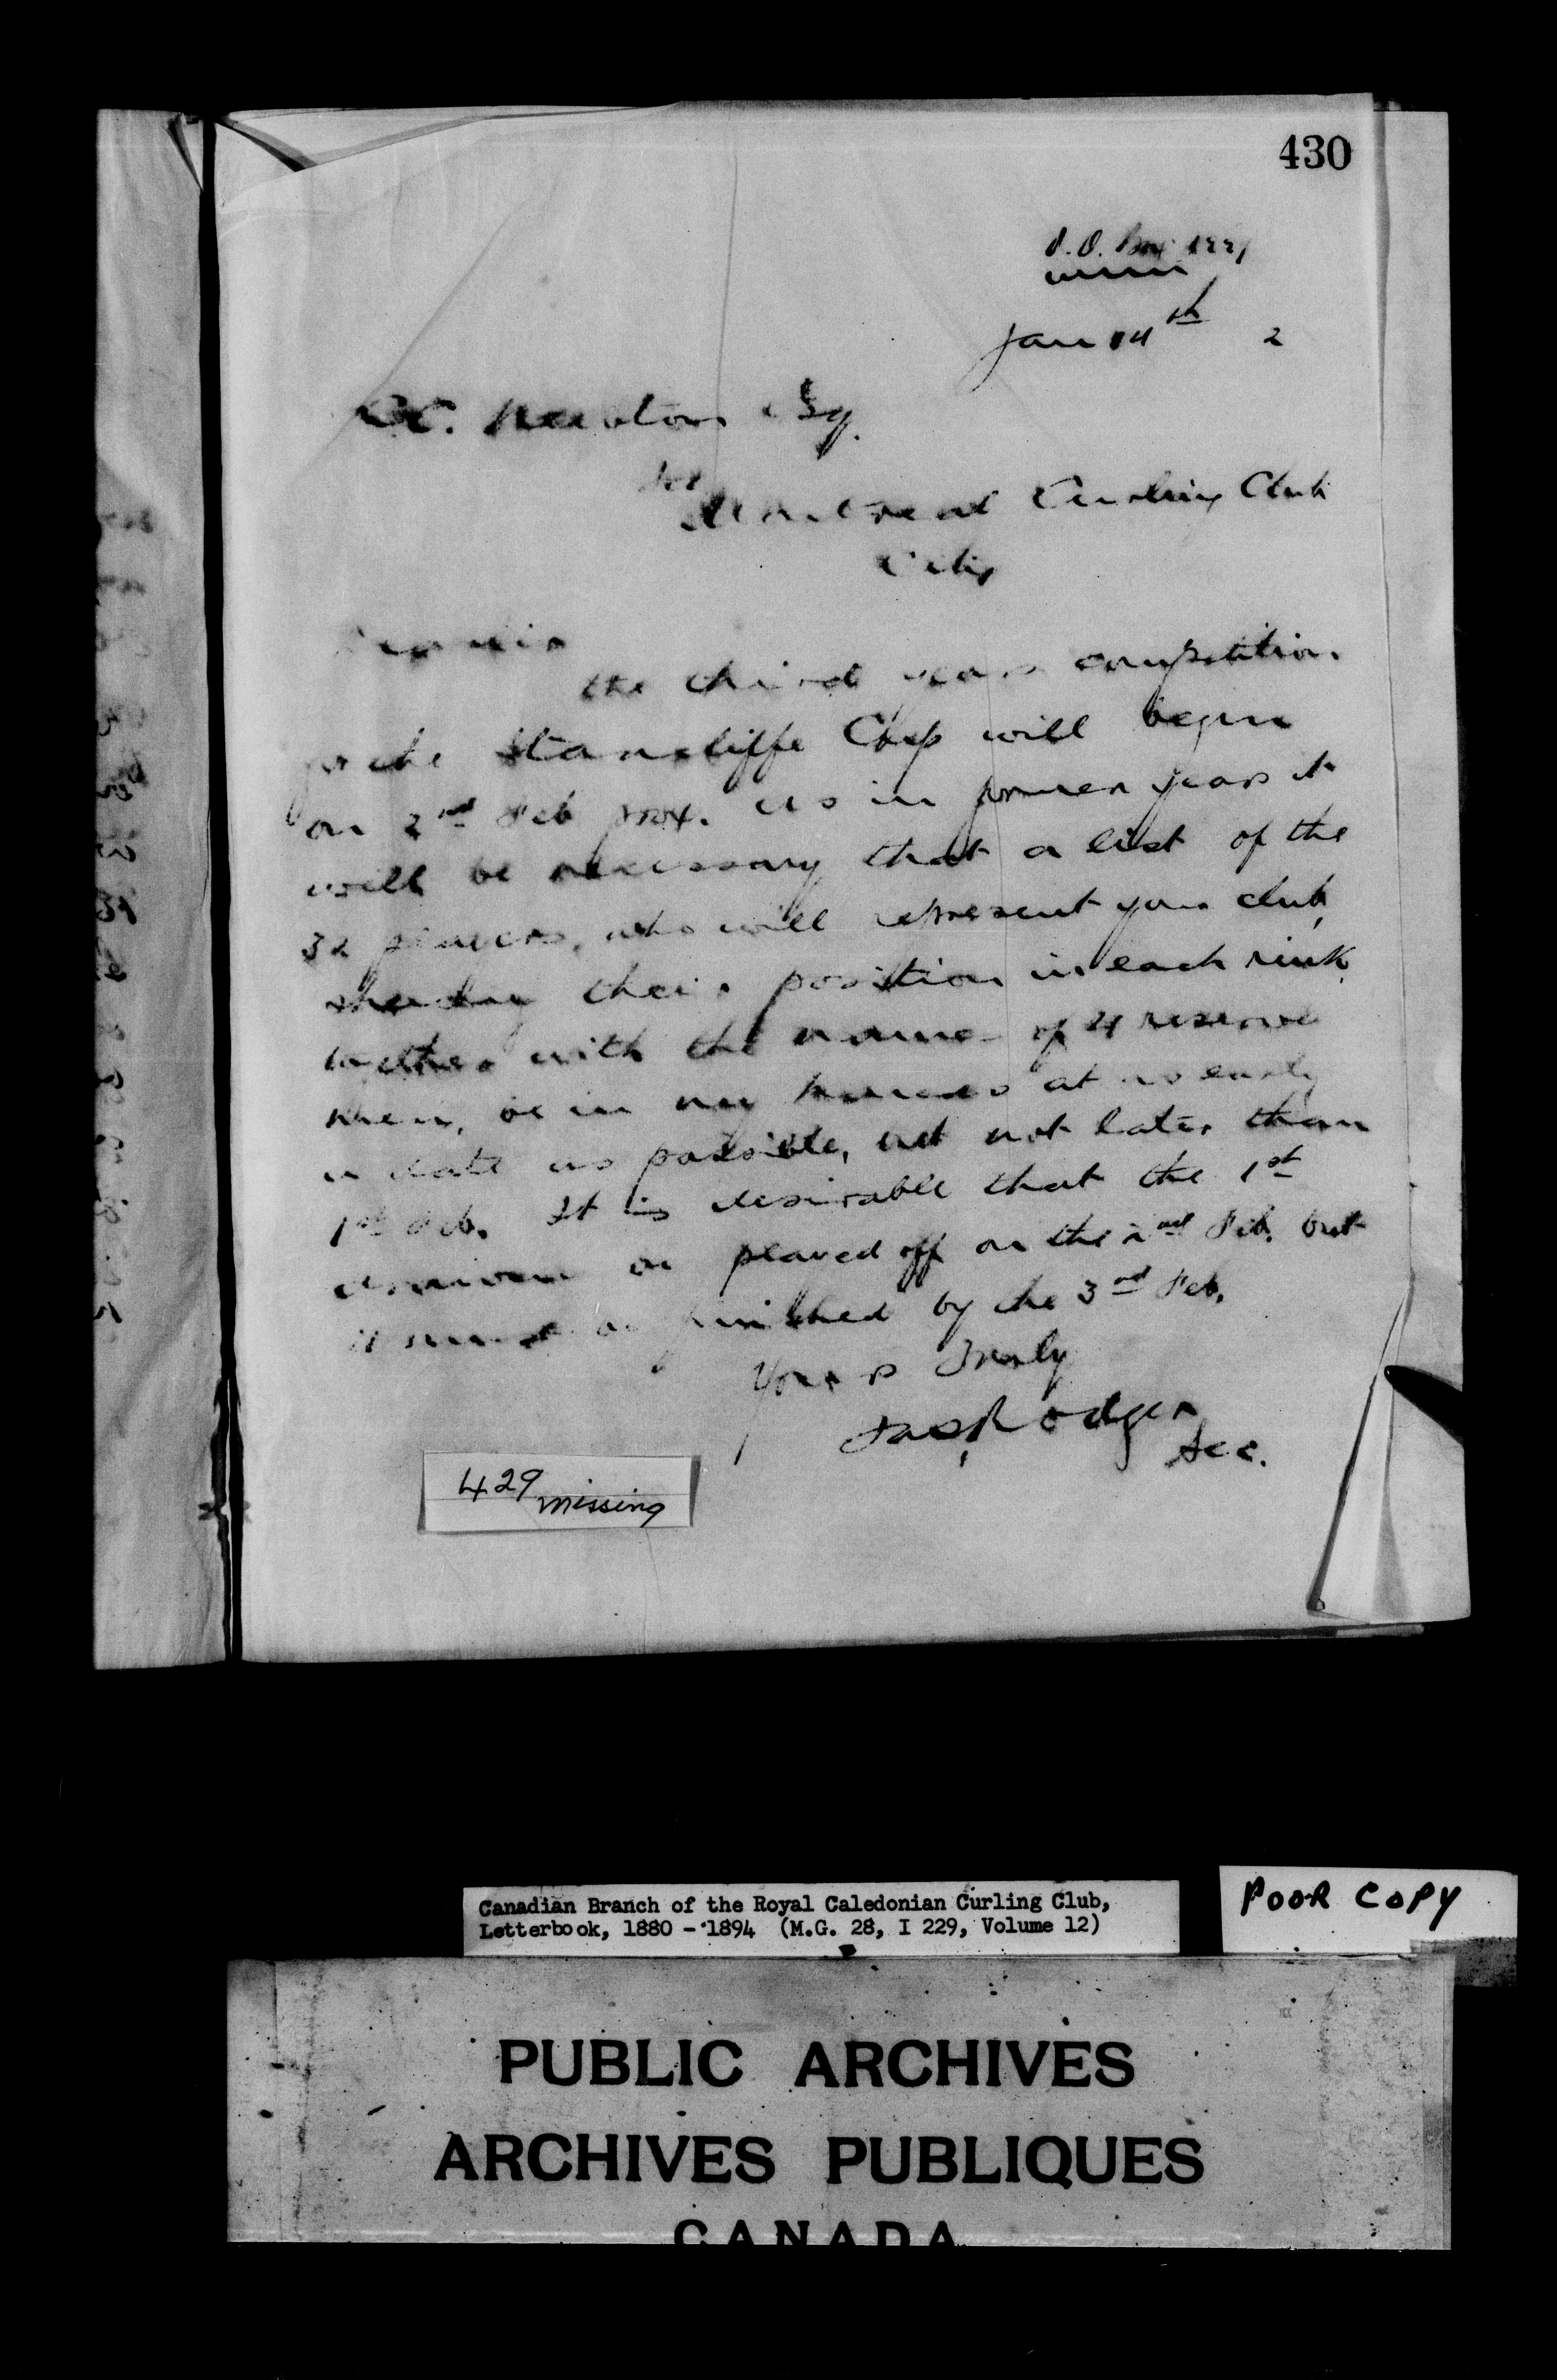 430
P.O. Box
Jan 14th 2
Esq.
Montreal Curling Club
City
Dear Sir
the third years competition
for the Stancliffe Cup will begin
on 2nd Feb prox. As in former years it
will be necessary that a list of the
32 players, who will represent your club,
showing their position in each rink
together with the names of 4 reserve
men, be in my hands at as early
a date as possible, but not later than
1st Feb. It is desirable that the 1st
be played off on the 2nd Feb. but
it must be finished by the 3rd Feb.
Yours Truly
Jas Rodger
Sec.
429 missing
Canadian Branch of the Royal Caledonian Curling Club,
Letterbook, 1880 - 1894 (M.G. 28, I 229, Volume 12)
POOR COPY
PUBLIC ARCHIVES
ARCHIVES PUBLIQUES
CANADA